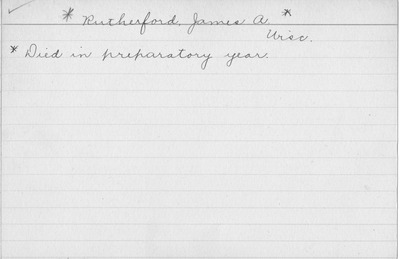 * Rutherford, James A. *
Wisc.
* Died in preparatory year.